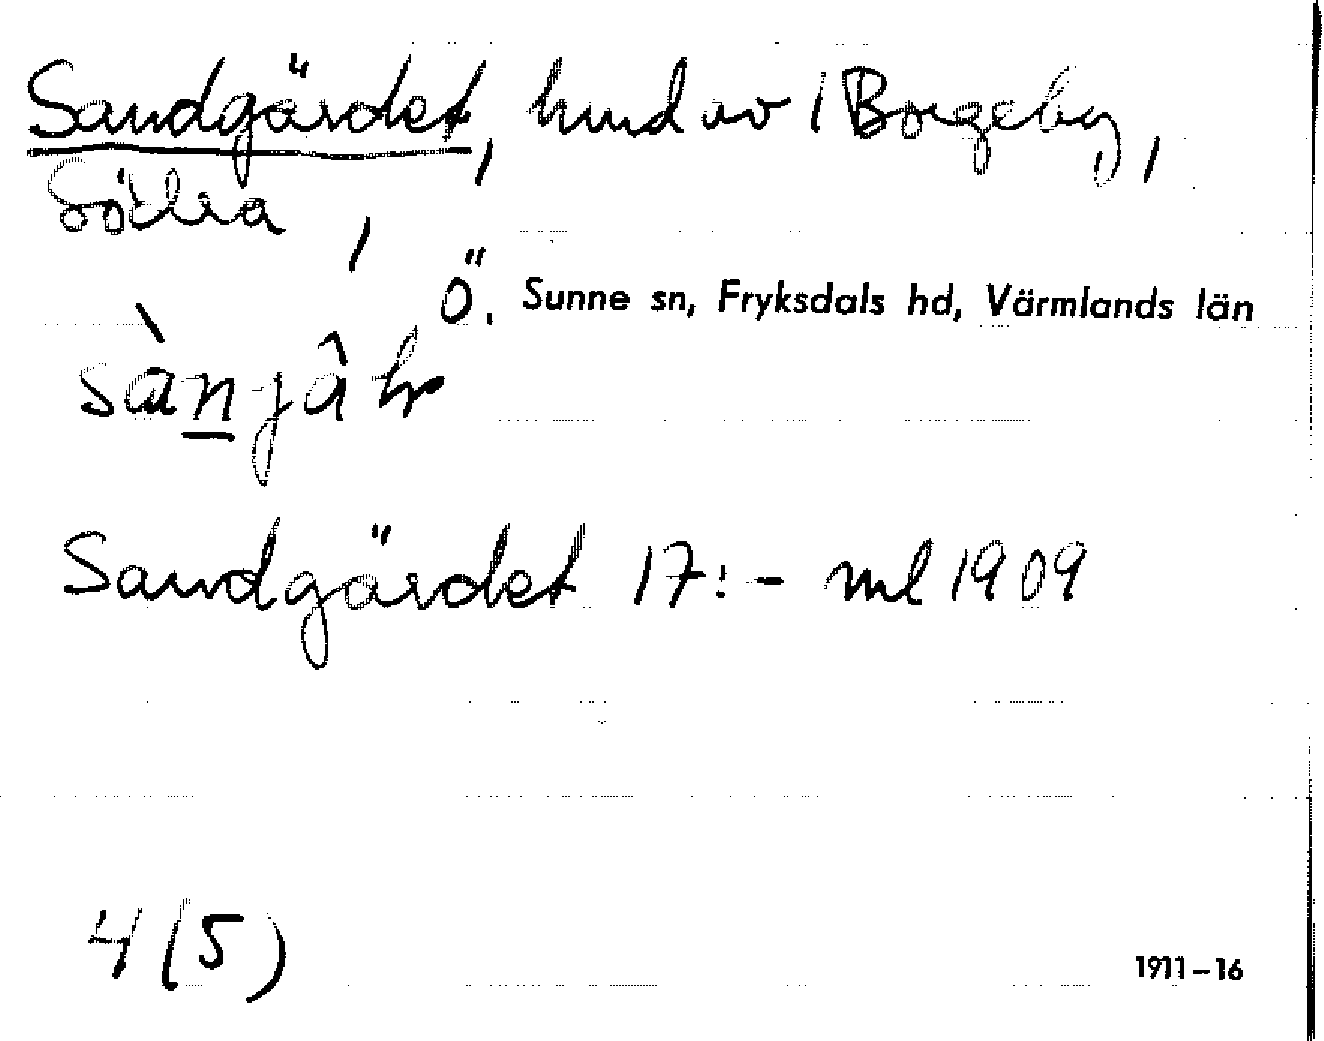 Sandgärdet, hmd av 1 Borgeby,
Södra,
Ö. Sunne sn, Fryksdals hd, Värmlands län
Sandgärdet 17:- ml 1909
4 (5)
1911-16